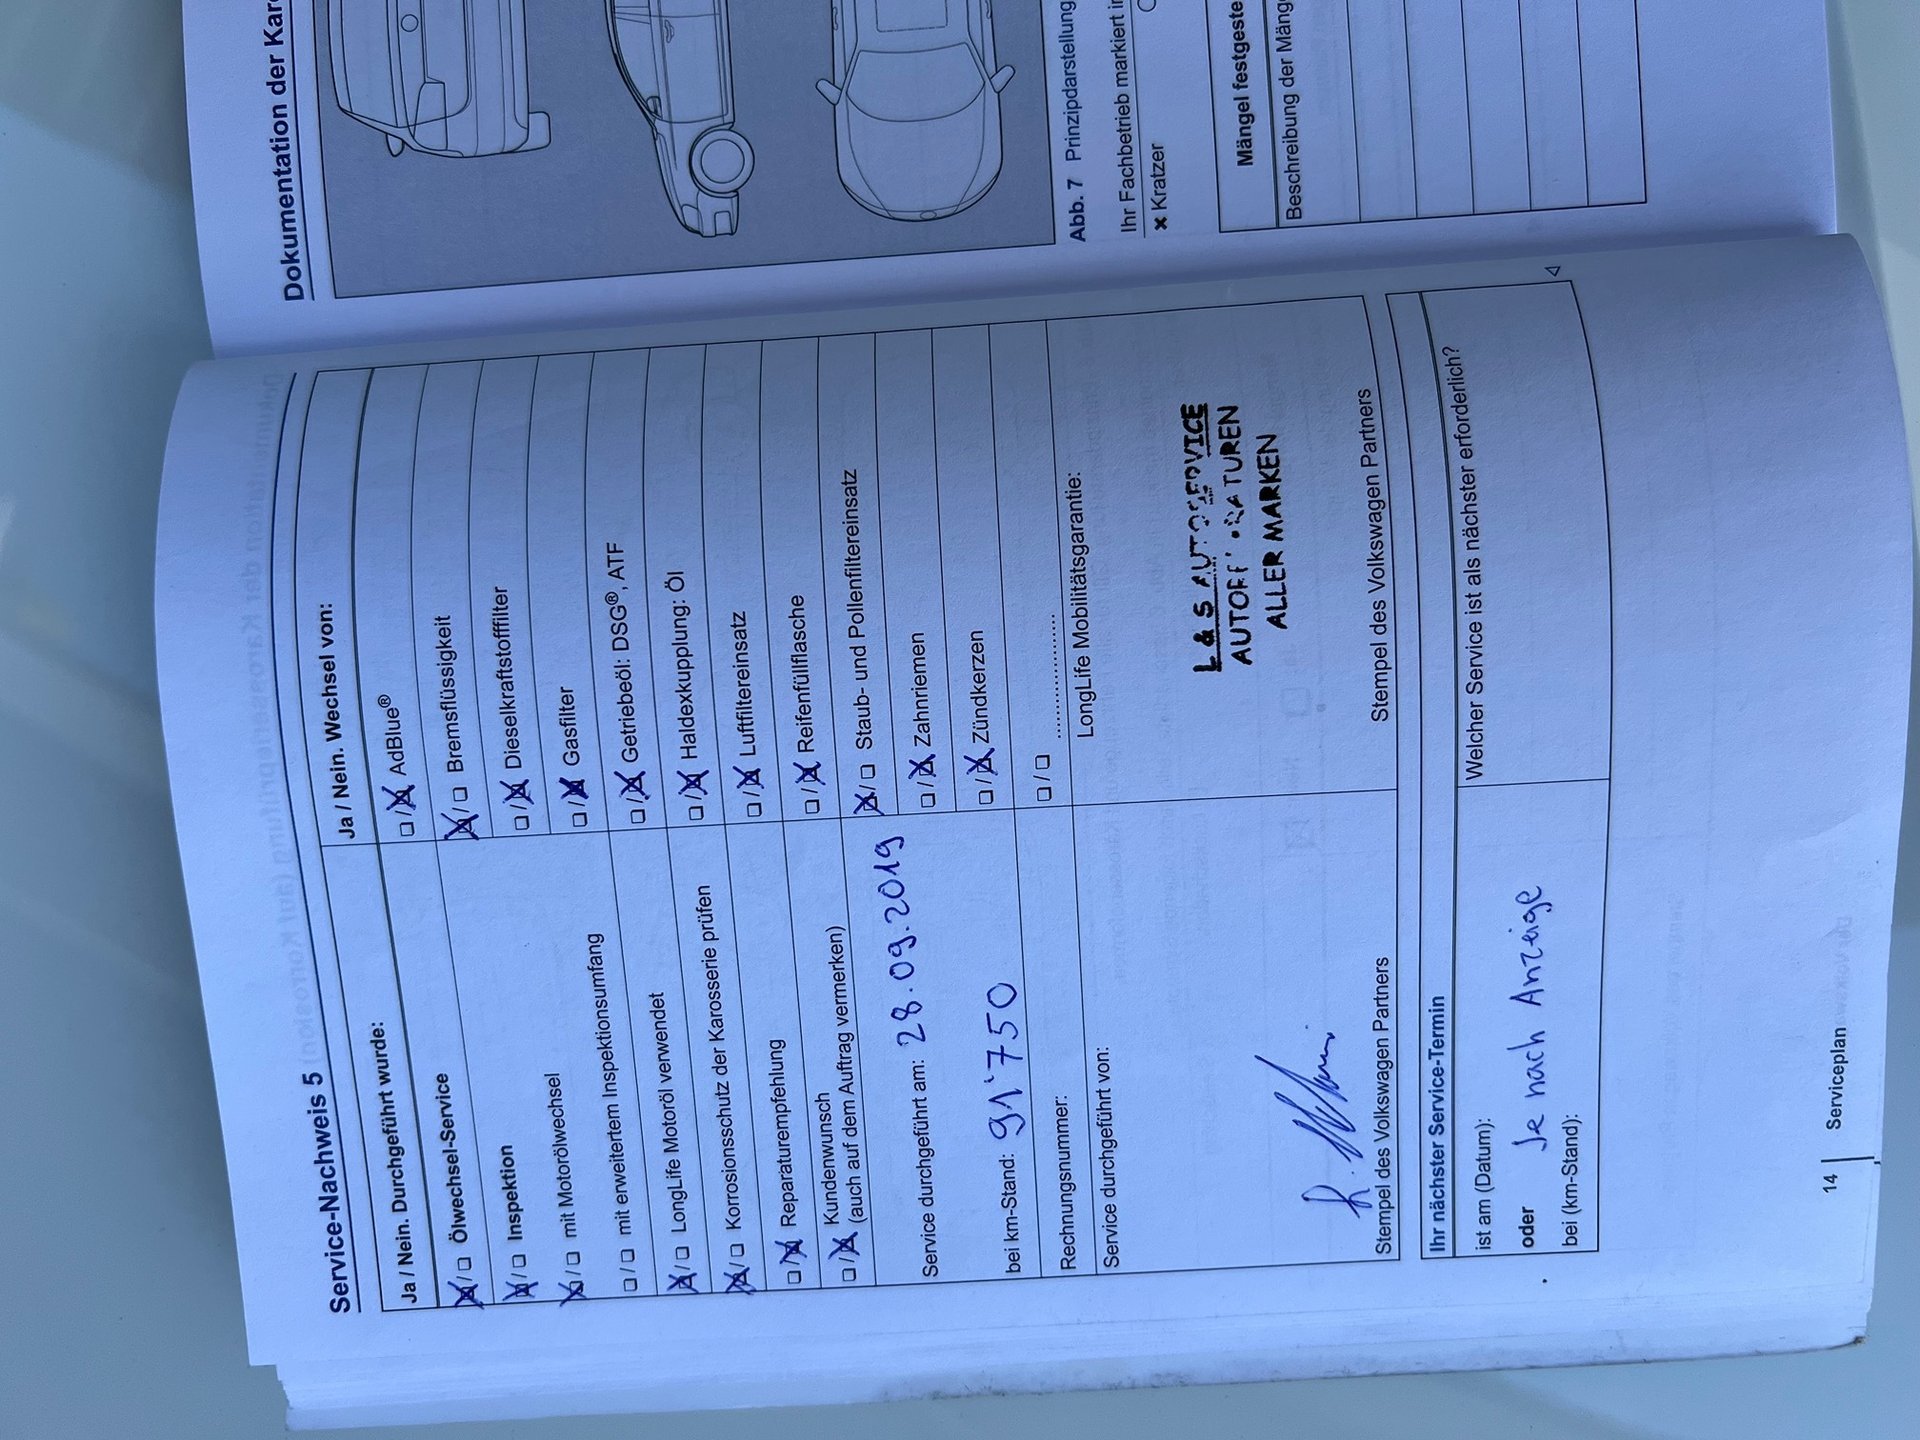 Service-Nachweis 5
Ja / Nein. Durchgeführt wurde:
Ölwechsel-Service
Inspektion
mit Motorölwechsel
mit erweitertem Inspektionsumfang
LongLife Motoröl verwendet
Korrosionsschutz der Karosserie prüfen
Reparaturempfehlung
Kundenwunsch
(auch auf dem Auftrag vermerken)
Service durchgeführt am: 28.09.2019
bei km-Stand: 91'750
Rechnungsnummer:
Service durchgeführt von:
Stempel des Volkswagen Partners
Ja / Nein. Wechsel von:
AdBlue®
Bremsflüssigkeit
Dieselkraftstofffilter
Gasfilter
Getriebeöl: DSG®, ATF
Haldexkupplung: Öl
Luftfiltereinsatz
Reifenfüllflasche
Staub- und Pollenfiltereinsatz
Zahnriemen
Zündkerzen
LongLife Mobilitätsgarantie:
L & S AUTOSERVICE
ALLER MARKEN
Stempel des Volkswagen Partners
Ihr nächster Service-Termin
ist am (Datum):
oder Je nach Anzeige
bei (km-Stand):
Welcher Service ist als nächster erforderlich?
14 Serviceplan
Dokumentation der
Abb. 7 Prinzipdarstellung
Ihr Fachbetrieb markiert
× Kratzer
Mängel
Beschreibung der